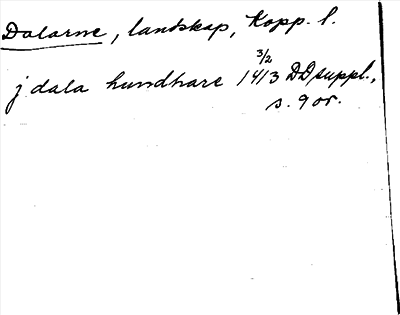 Dalarne, landskap, Kopp. l.
j dala hundhare 3/2 1413 DD suppl.,
s. 9 or.